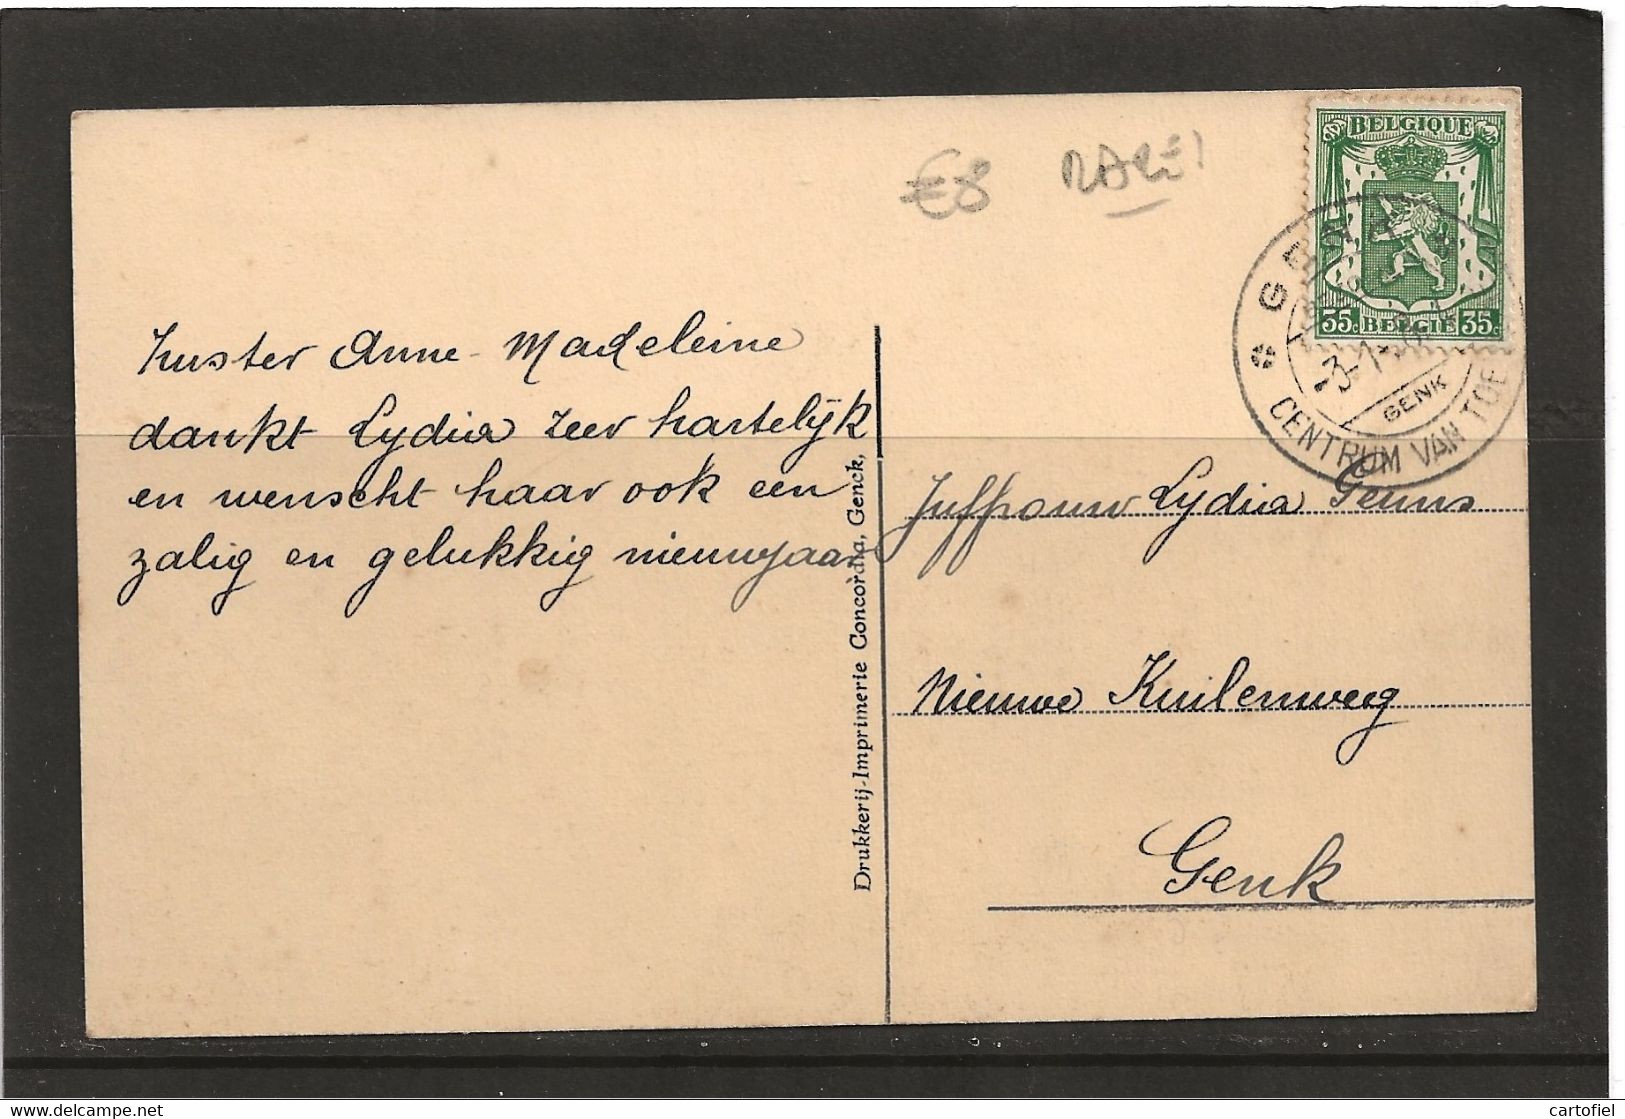 €8 RARE!
BELGIQUE
35c BELGIE 35c
CENTRUM VAN TOE
GENK
Zuster Anne-Madeleine
dankt Lydia zeer hartelijk
en wenscht haar ook een
zalig en gelukkig nieuwjaar
Drukkerij-Imprimerie Concordia, Genck,
Juffrouw Lydia Geuns
Nieuwe Kuilenweg
Genk
delcampe.net
cartofiel